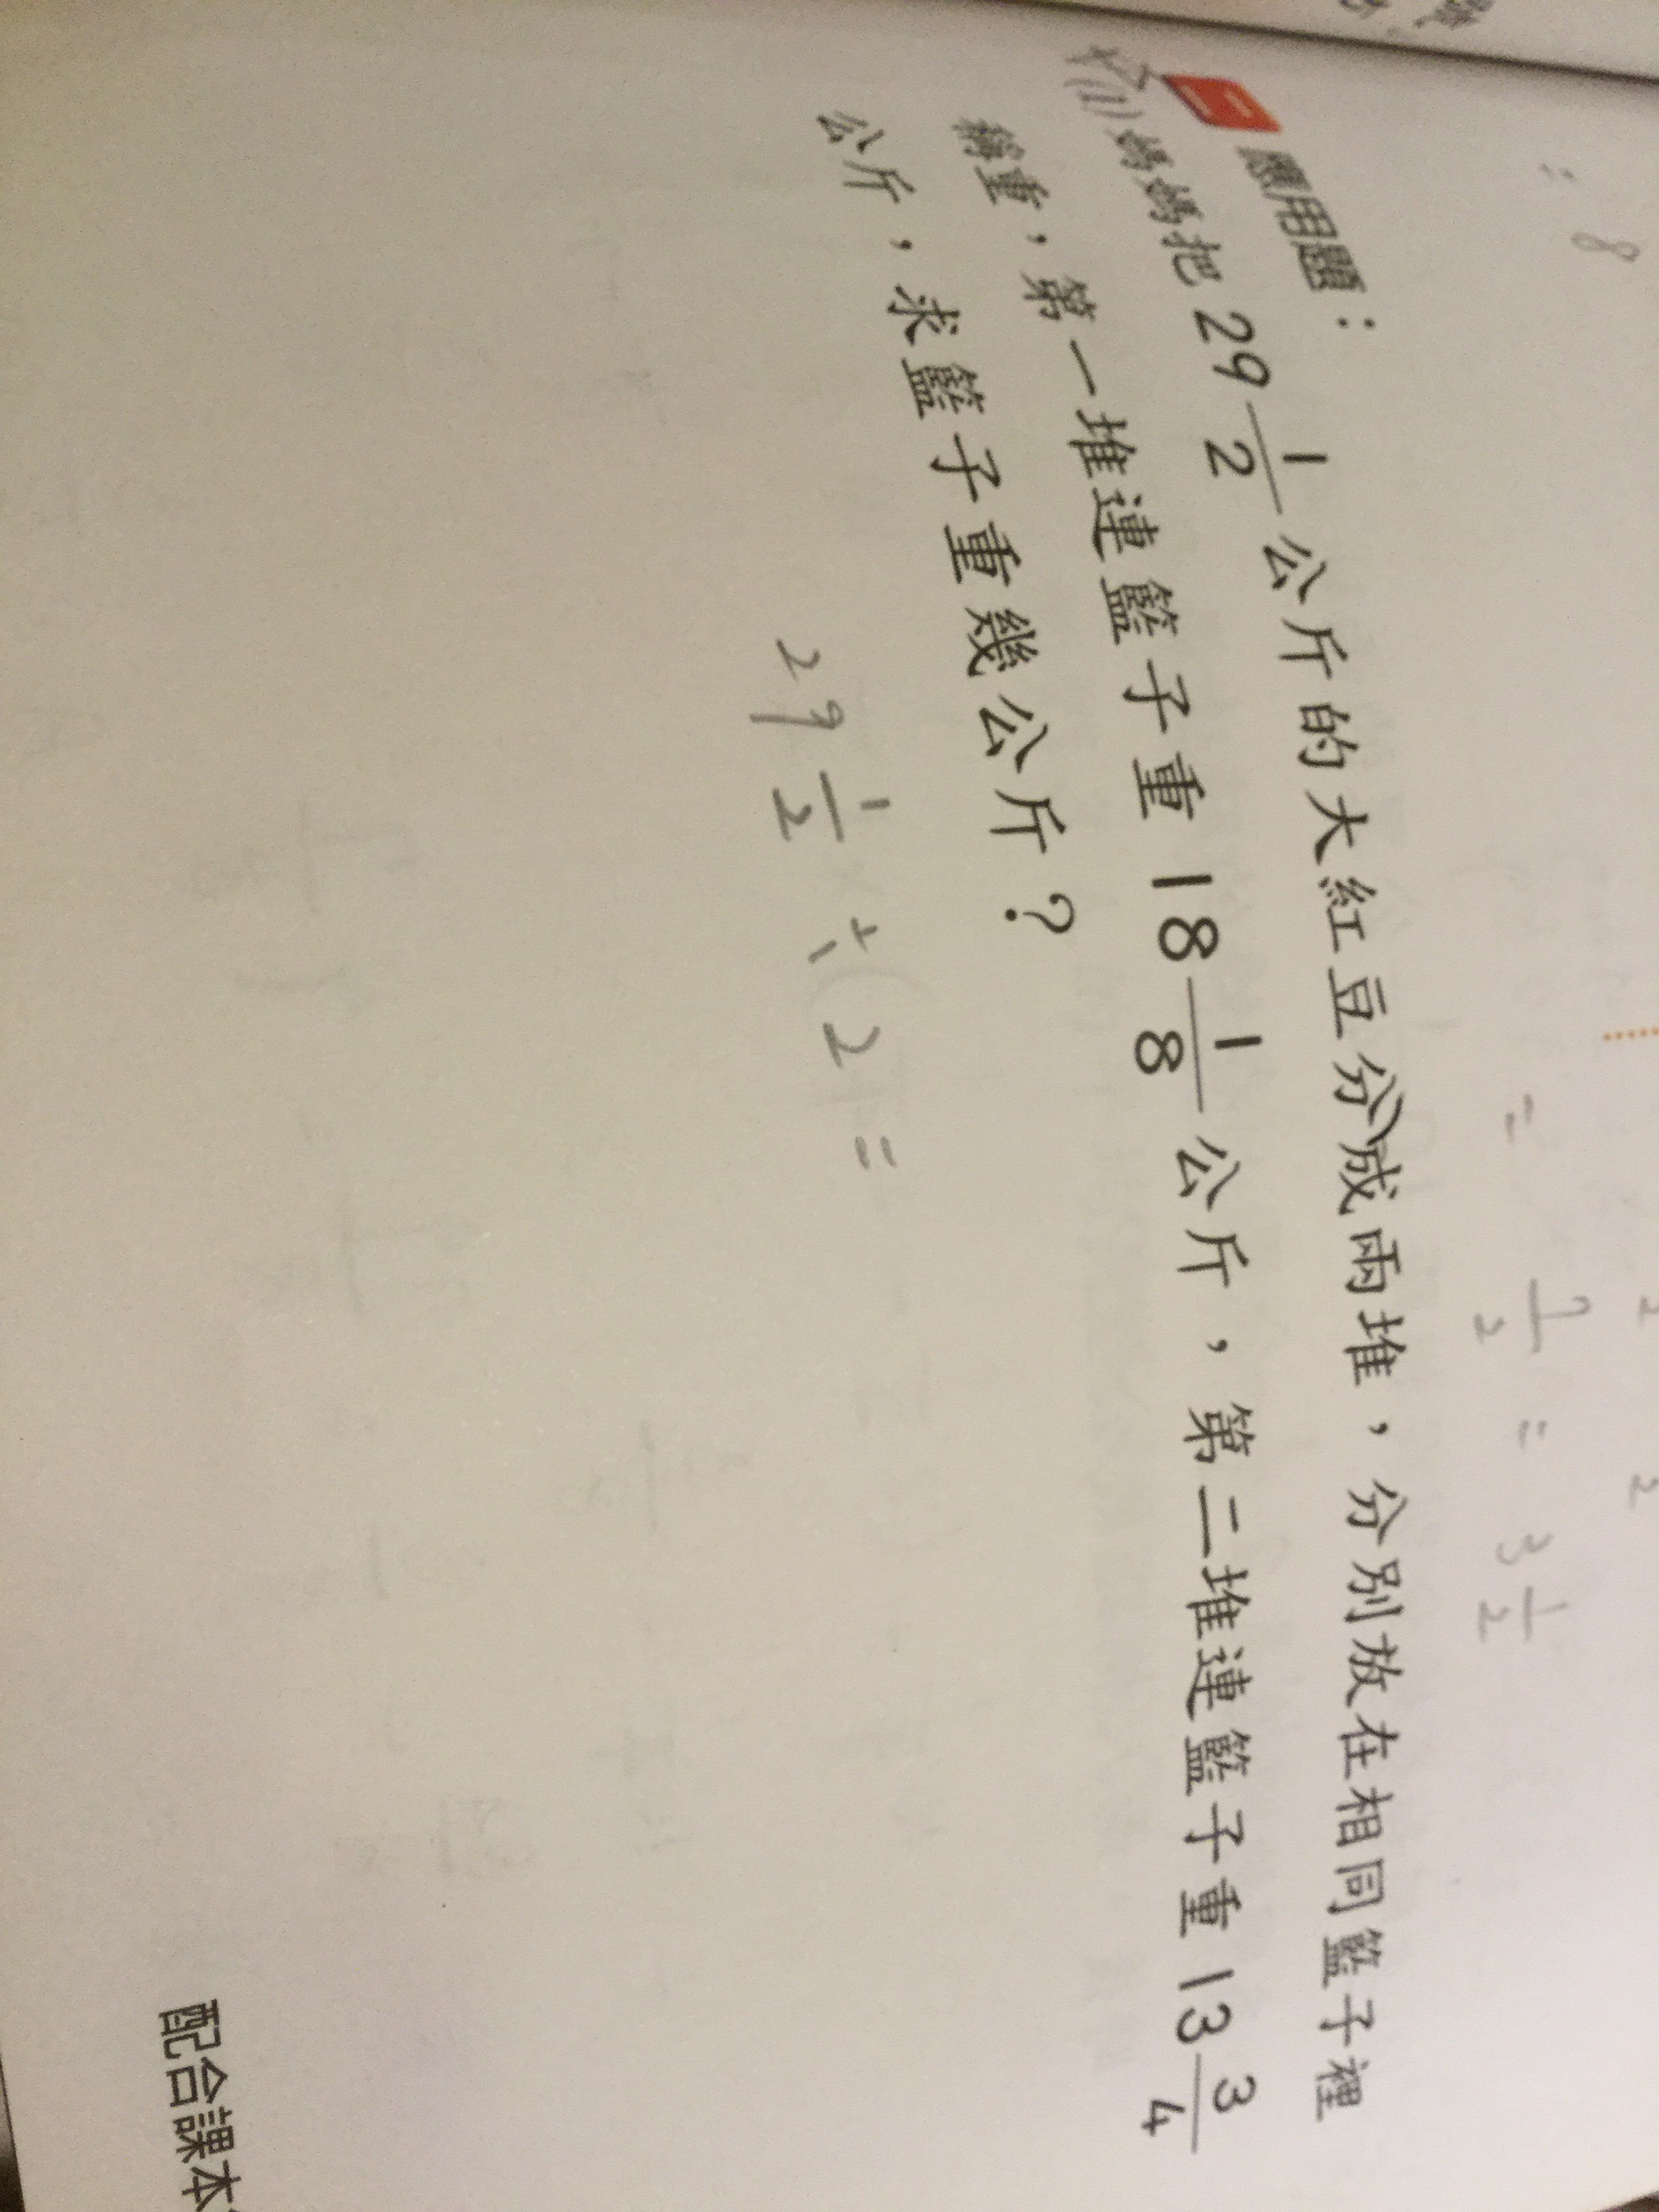 應用題：
(1) 媽媽把 29 1/2 公斤的大紅豆分成兩堆，分別放在相同籃子裡
稱重，第一堆連籃子重 18 1/8 公斤，第二堆連籃子重 13 3/4
公斤，求籃子重幾公斤？
29 1/2 ÷ (2 =
= 7/2 = 3 1/2
= 8
配合課本